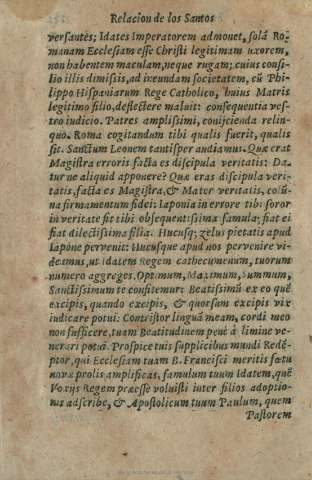 Relacion de los Santos
versantes; Idates Imperatorem admonet, solã Ro-
manam Ecclesiam esse Christi legitimam uxorem,
non habentem maculam, neque rugam; cuius consi-
lio illis dimissis, ad ineundam societatem, cũ Phi-
lippo Hispaniarum Rege Catholico, huius Matris
legitimo filio, deflectere maluit: consequentia ves-
tro iudicio. Patres amplissimi, conijcienda relin-
quo. Roma cogitandum tibi qualis fuerit, qualis
sit. Sanctum Leonem tantisper audiamus. Quæ erat
Magistra erroris facta es discipula veritatis: Da-
tur ne aliquid apponere? Quæ eras discipula veri-
tatis, facta es Magistra, & Mater veritatis, colũ-
na firmamentum fidei: Iaponia in errore tibi soror
in veritate fit tibi obsequentissima famula: fiat ei
fiat dilectissima filia. Hucusq; zelus pietatis apud
Iapone pervenit: Hucusque apud nos pervenire vi-
deamus, ut Idatem Regem cathecumenum, tuorum
numero aggreges. Optimum, Maximum, Summum,
Sanctissimum te confitemur: Beatissimũ ex eo quẽ
excipis, quando excipis, & quorsum excipis vix
iudicare potui: Contristor linguã meam, cordi meo
non sufficere, tuam Beatitudinem penè à limine ve-
nerari potuì. Prospice tuis supplicibus mundi Redẽ-
ptor, qui Ecclesiam tuam B. Francisci meritis fœtu
novæ prolis amplificas, famulum tuum Idatem, quẽ
Voxijs Regem præesse voluisti inter filios adoptio-
nis adscribe, & Apostolicum tuum Paulum, quem
Pastorem